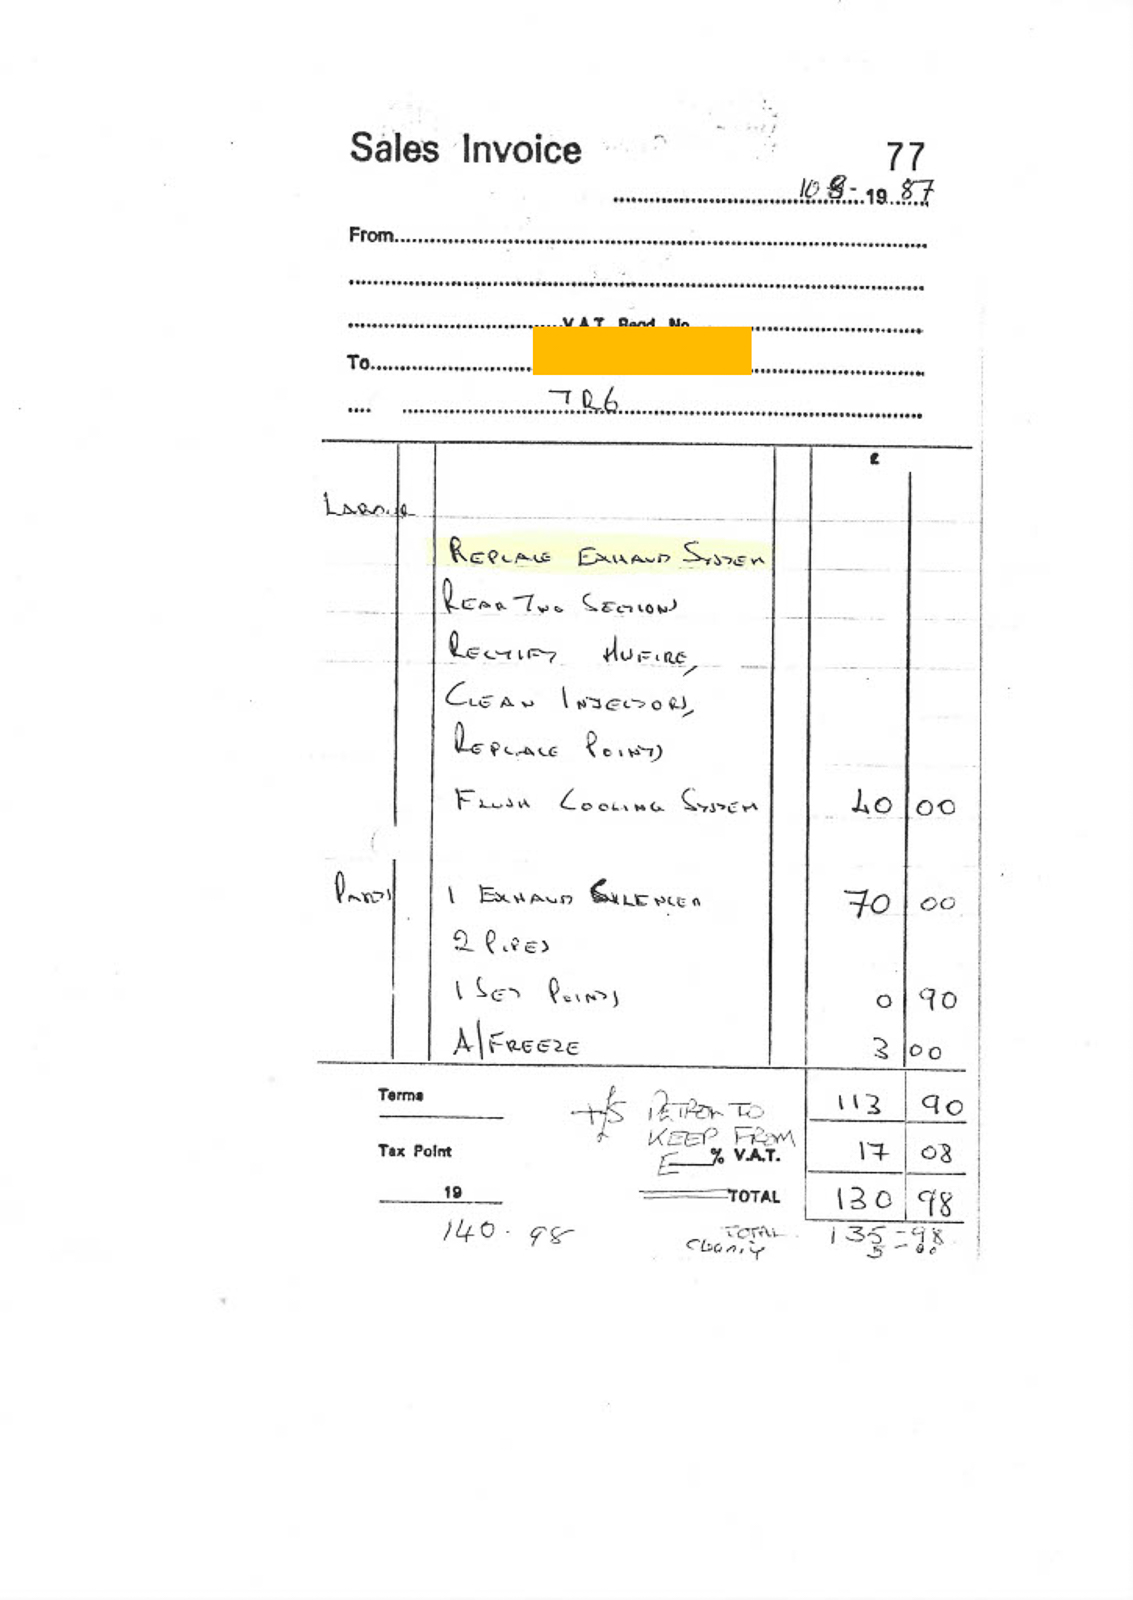 Sales Invoice 77
10 8- 19 87
From
V.A.T. Regd. No.
To
TR6
£
LABOUR
REPLACE EXHAUST SYSTEM
REAR TWO SECTIONS
RECTIFY
CLEAN INJECTORS,
REPLACE POINTS
FLUSH COOLING SYSTEM 40 00
PARTS 1 EXHAUST SILENCER 70 00
2 PIPES
1 SET POINTS 0 90
A/FREEZE 3 00
Terms +£5 PETROL TO 113 90
KEEP FROM
Tax Point E % V.A.T. 17 08
19 TOTAL 130 98
140.98 TOTAL 135-98
5-00